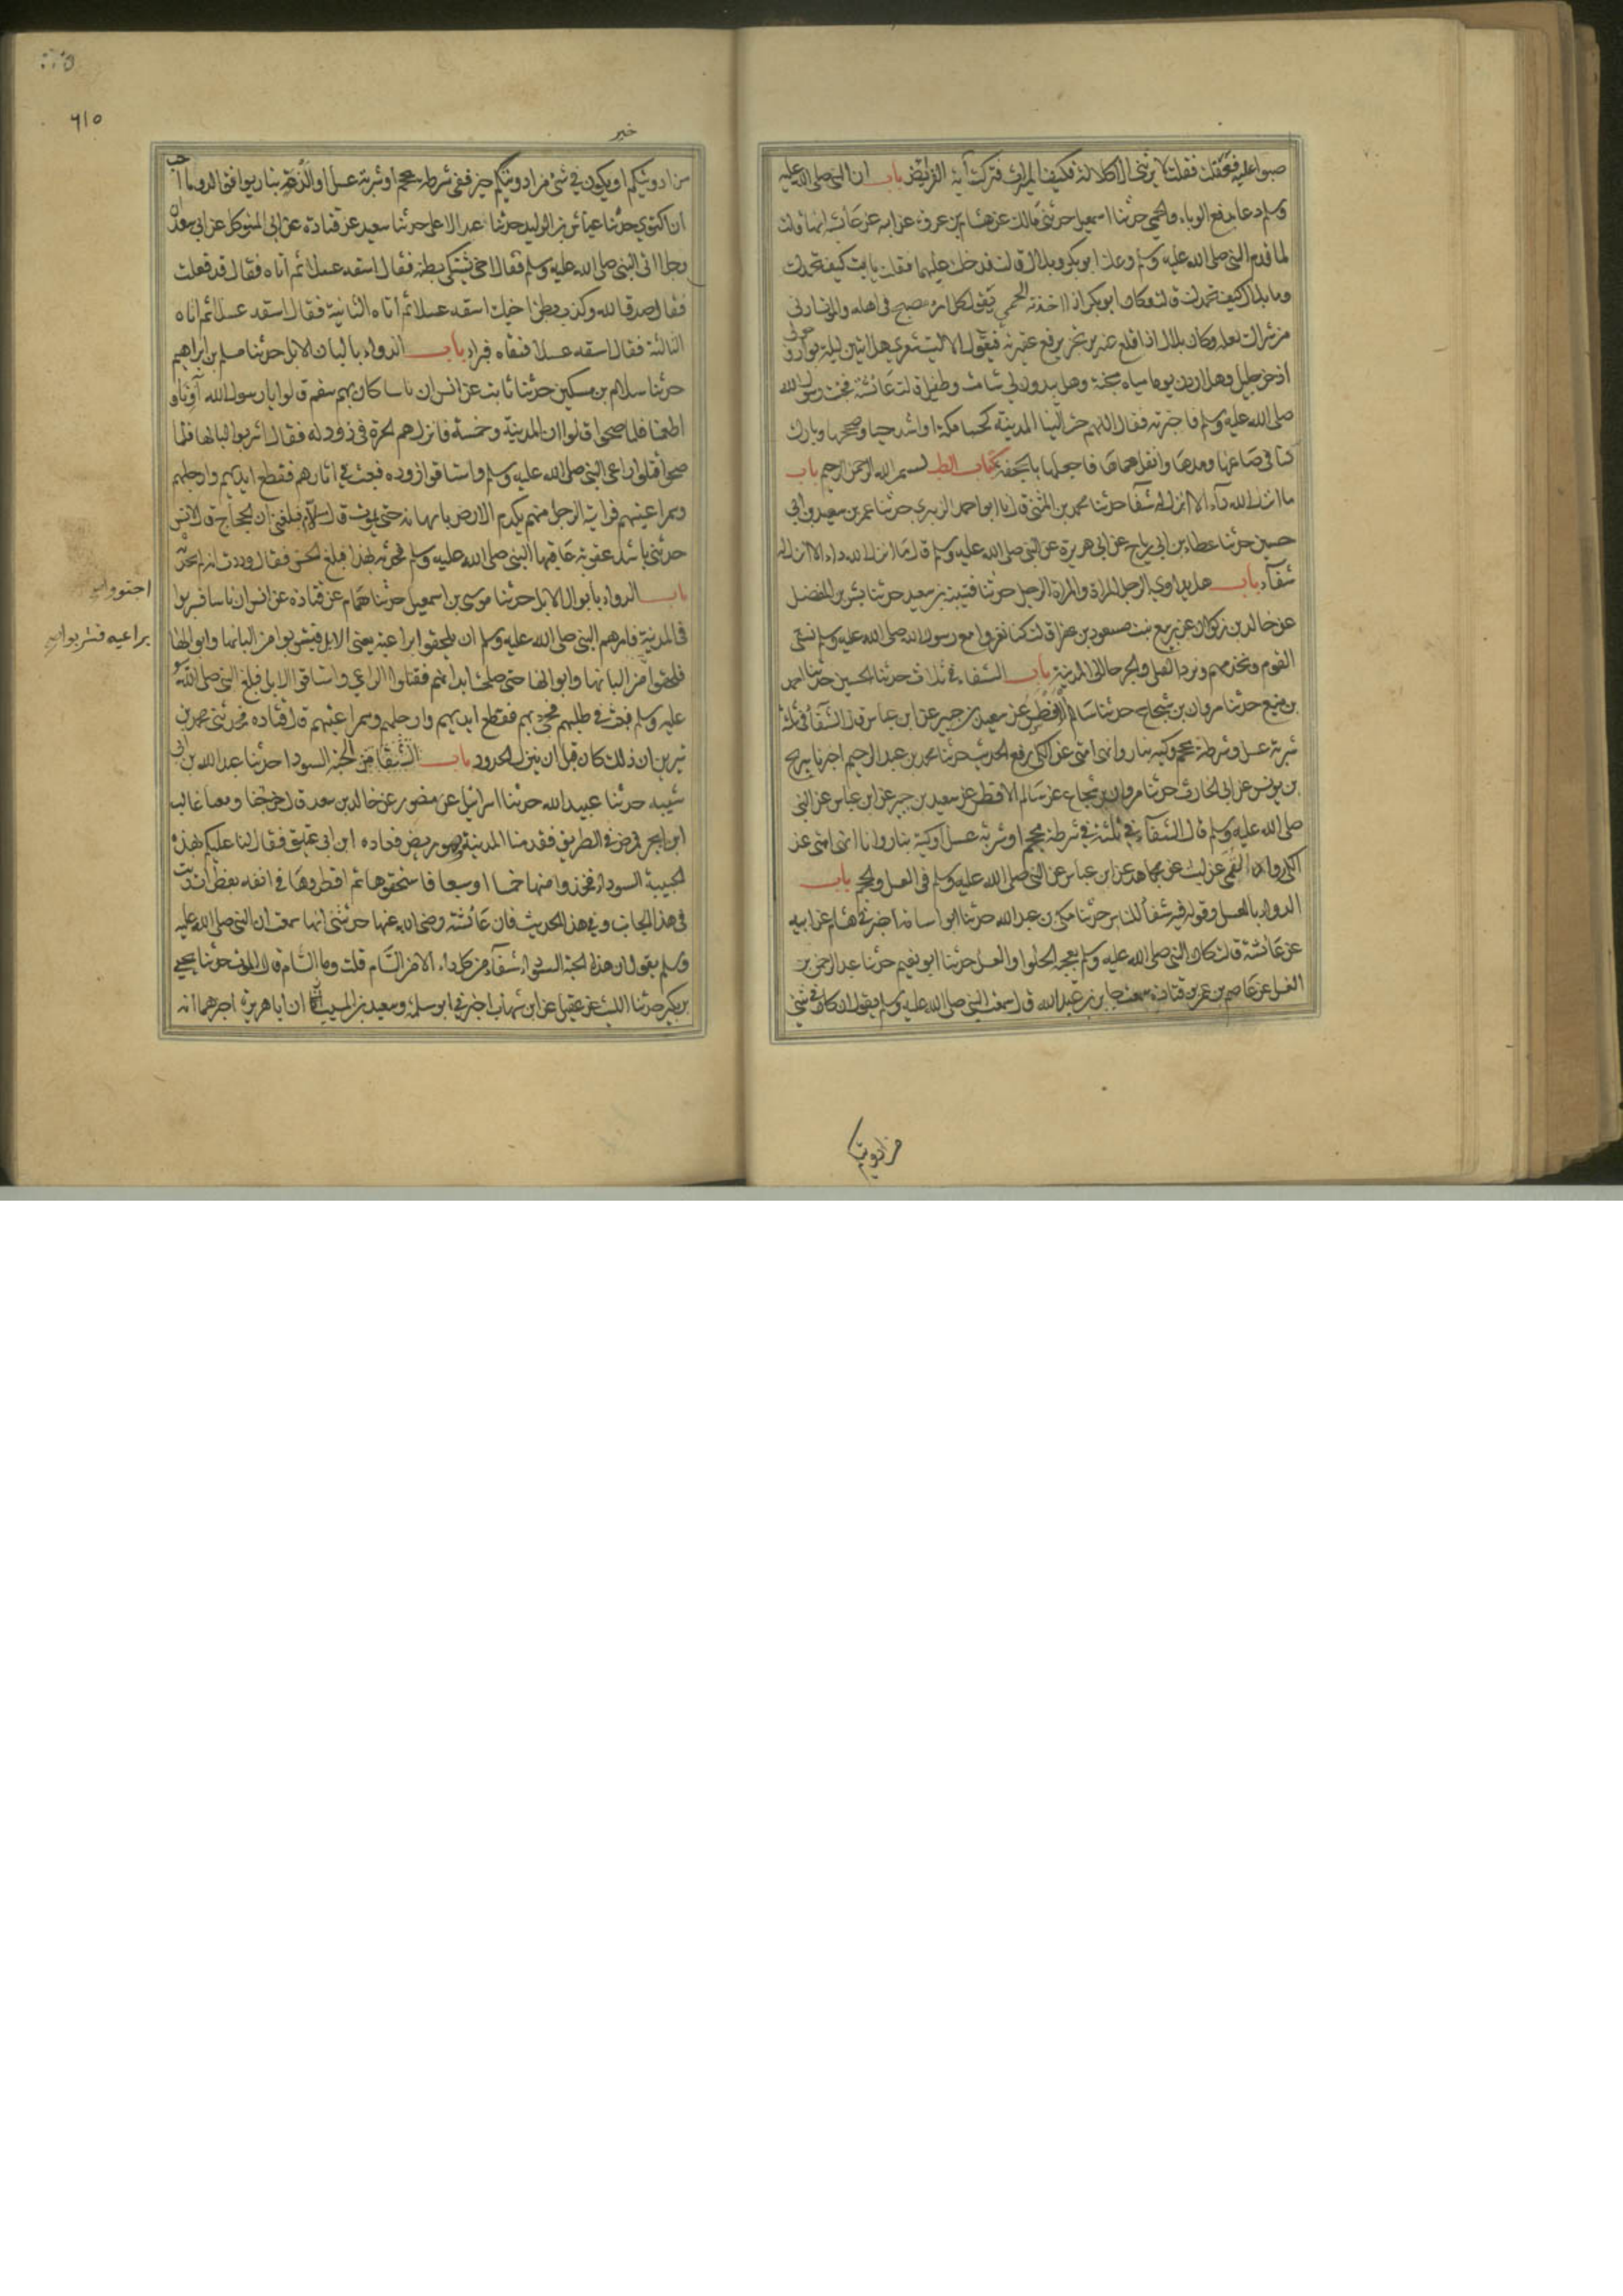 صبوا علىه فعقلت فقلت لا يرثنى الا كلالة فكيف الميراث فنزلت آية الفرائض باب ان النبى صلى الله عليه
وسلم دعا برفع الوباء والحمى حدثنا اسمعيل حدثنى مالك عن هشام بن عروة عن ابيه عن عائشة انها قالت
لما قدم النبى صلى الله عليه وسلم وعك ابو بكر وبلال قالت فدخلت عليهما فقلت يا ابت كيف تجدك
ويا بلال كيف تجدك قالت وكان ابو بكر اذا اخذته الحمى يقول كل امرء مصبح فى اهله والموت ادنى
من شراك نعله وكان بلال اذا اقلع عنه يرفع عقيرته فيقول الا ليت شعرى هل ابيتن ليلة بواد وحولى
اذخر وجليل وهل اردن يوما مياه مجنة وهل يبدون لى شامة وطفيل قالت عائشة فجئت رسول الله
صلى الله عليه وسلم فاخبرته فقال اللهم حبب الينا المدينة كحبنا مكة او اشد حبا وصححها وبارك
لنا فى صاعها ومدها وانقل حماها فاجعلها بالجحفة كتاب الطب بسم الله الرحمن الرحيم باب
ما انزل الله داء الا انزل له شفا حدثنا محمد بن المثنى قال نا ابو احمد الزبيرى حدثنا عمر بن سعيد بن ابى
حسين حدثنا عطاء بن ابى رباح عن ابى هريرة عن النبى صلى الله عليه وسلم قال ما انزل الله داء الا انزل له
شفآء باب هل يداوى الرجل المراة والمراة الرجل حدثنا قتيبة بن سعيد حدثنا بشر بن المفضل
عن خالد بن ذكوان عن ربيع بنت مسعود بن عفرا قالت كنا نغزوا مع رسول الله صلى الله عليه وسلم نسقى
القوم ونخدمهم ونرد القتلى والجرحا الى المدينة باب الشفاء فى ثلاث حدثنا الحسين حدثنا احمد
بن منيع حدثنا مروان بن شجاع حدثنا سالم الافطس عن سعيد بن جبير عن ابن عباس قال الشفآء فى ثلاثة
شربة عسل وشرطة محجم وكية بنار وانهى امتى عن الكى رفع الحديث حدثنا محمد بن عبد الرحيم اخبرنا سريج
بن يونس عن ابى الحارث حدثنا مروان بن شجاع عن سالم الافطس عن سعيد بن جبير عن ابن عباس عن النبى
صلى الله عليه وسلم قال الشفآء فى ثلثة فى شرطة محجم او شربة عسل او كية بنار وانا انهى امتى عن
الكى رواه القمى عن ليث عن مجاهد عن ابن عباس عن النبى صلى الله عليه وسلم فى العسل والحجم باب
الدواء بالعسل وقوله فيه شفآ للناس حدثنا على بن عبد الله حدثنا ابو اسامة اخبرنى هشام عن ابيه
عن عائشة قالت كان النبى صلى الله عليه وسلم يعجبه الحلوا والعسل حدثنا ابو نعيم حدثنا عبد الرحمن بن
الغسل عن عاصم بن عمر بن قتادة سمعت جابر بن عبد الله قال سمعت النبى صلى الله عليه وسلم يقول ان كان فى شئ
من ادويتكم
٦١٥
خير
من ادويتكم او يكون فى شئ من ادويتكم خير ففى شرطة محجم او شربة عسل او لذعة بنار يوافق الدوا وما احب
ان اكتوى حدثنا عياش بن الوليد حدثنا عبد الاعلى حدثنا سعيد عن قتادة عن ابى المتوكل عن ابى سعيد ان
رجلا اتى النبى صلى الله عليه وسلم فقال اخى يشتكى بطنه فقال اسقه عسلا ثم اتاه فقال قد فعلت
فقال صدق الله وكذب بطن اخيك اسقه عسلا ثم اتاه الثانية فقال اسقه عسلا ثم اتاه
الثالثة فقال اسقه عسلا فسقاه فبراء باب الدواء بالبان الابل حدثنا مسلم بن ابراهيم
حدثنا سلام بن مسكين حدثنا ثابت عن انس ان ناسا كان بهم سقم قالوا يا رسول الله آونا و
اطعمنا فلما صحوا قالوا ان المدينة وخمسة فانزلهم الحرة فى ذود له فقال اشربوا البانها فلما
صحوا قتلوا راعى النبى صلى الله عليه وسلم واستاقوا ذوده فبعث فى اثارهم فقطع ايديهم وارجلهم
وسمر اعينهم فرايت الرجل منهم يكدم الارض بلسانه حتى يموت قال سلام فبلغنى ان الحجاج قال لانس
حدثنى باشد عقوبة عاقبها النبى صلى الله عليه وسلم فحدثه بهذا فبلغ الحسن فقال وددت انه لم يحدثه
باب الدواء بأبوال الابل حدثنا موسى بن اسمعيل حدثنا همام عن قتادة عن انس ان ناسا
اجتووا
فى المدينة فامرهم النبى صلى الله عليه وسلم ان يلحقوا براعيه يعنى الابل فيشربوا من البانها وابوالها
براعيه فشربوا
فلحقوا من البانها وابوالها حتى صلحت ابدانهم فقتلوا الراعى واستاقوا الابل فبلغ النبى صلى الله
عليه وسلم فبعث فى طلبهم فجئ بهم فقطع ايديهم وارجلهم وسمر اعينهم قال قتادة فحدثنى محمد بن
سيرين ان ذلك كان قبل ان ينزل الحدود باب الشفا من الحبة السودا حدثنا عبد الله بن ابى
شيبة حدثنا عبيد الله حدثنا اسرائيل عن منصور عن خالد بن سعد قال خرجنا ومعنا غالب
ابن ابجر فمرض فى الطريق فقدمنا المدينة وهو مريض فعاده ابن ابى عتيق فقال لنا عليكم بهذه
الحبيبة السوداء فخذوا منها خمسا او سبعا فاسحقوها ثم اقطروها فى انفه بقطرات زيت
فى هذا الجانب وفى هذا الحديث فان عائشة رضى الله عنها حدثتنى انها سمعت ان النبى صلى الله عليه
وسلم يقول ان هذه الحبة السوداء شفآء من كل داء الا من السام قلت وما السام قال الموت حدثنا يحيى
بن بكير حدثنا الليث عن عقيل عن ابن شهاب اخبرنى ابو سلمة وسعيد بن المسيب ان ابا هريرة اخبرهما انه